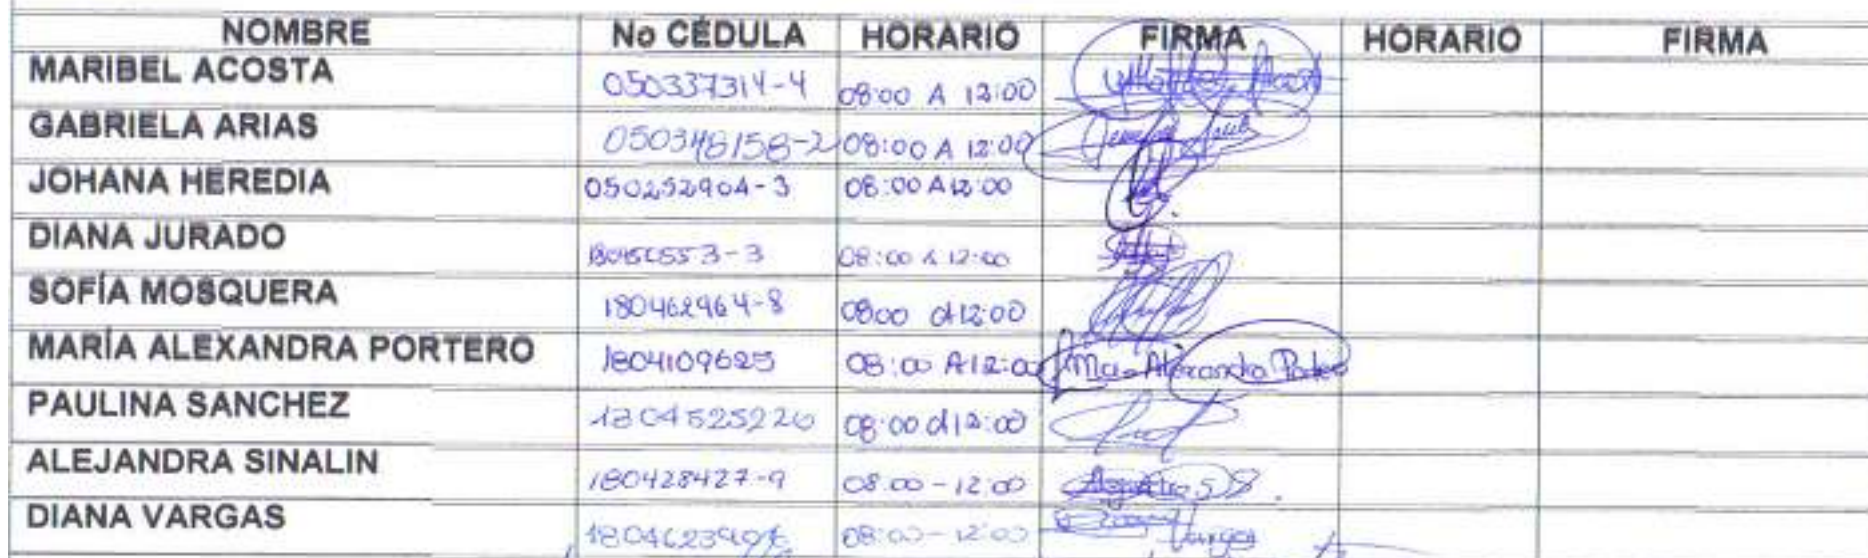 NOMBRE No CÉDULA HORARIO FIRMA HORARIO FIRMA
MARIBEL ACOSTA 050337314-4 08:00 A 12:00
GABRIELA ARIAS 050348158-2 08:00 A 12:00
JOHANA HEREDIA 050252904-3 08:00 A 12:00
DIANA JURADO 08:00 A 12:00
SOFÍA MOSQUERA 180462964-8 08:00 A 12:00
MARÍA ALEXANDRA PORTERO 1804109625 08:00 A 12:00 Ma. Alexandra Portero
PAULINA SANCHEZ 1804525226 08:00 A 12:00
ALEJANDRA SINALIN 180428427-9 08:00 - 12:00
DIANA VARGAS 08:00 - 12:00 Vargas